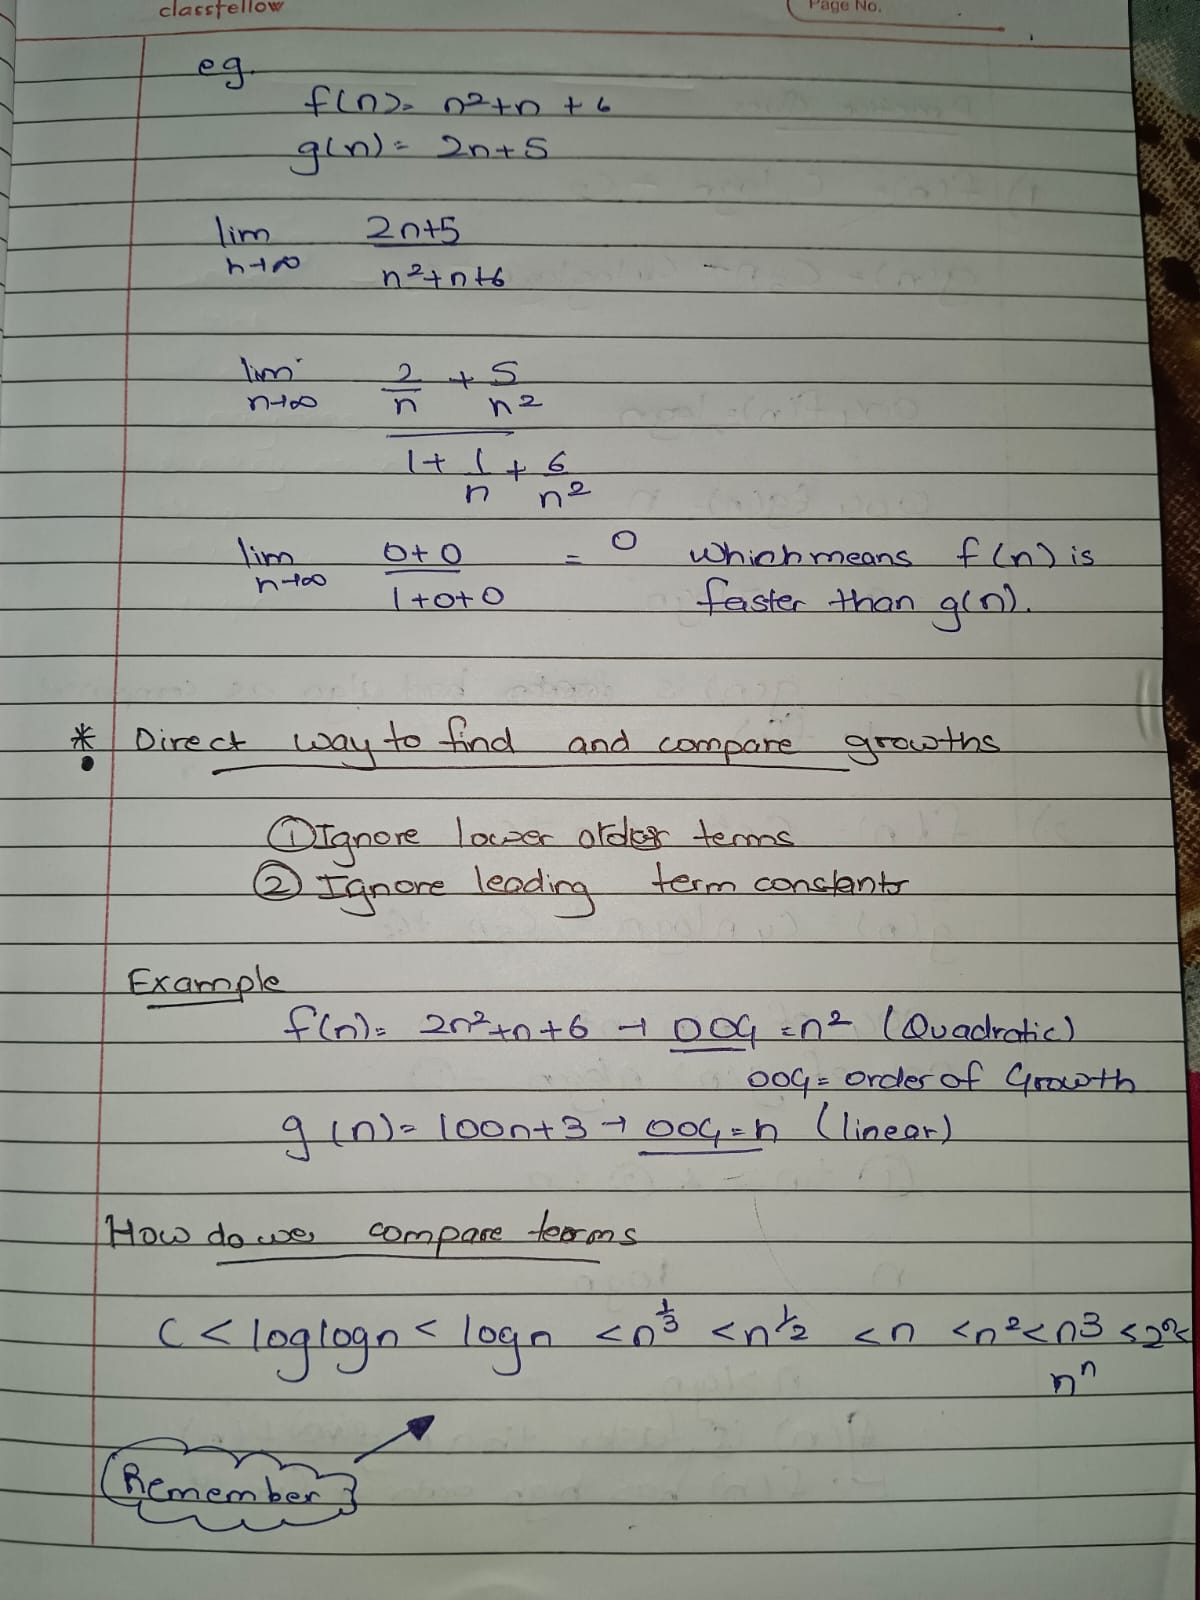 classfellow
Page No.
eg.
f(n) = n²+n + 6
g(n) = 2n+5
lim n→∞ (2n+5)/(n²+n+6)
lim n→∞ (2/n + 5/n²)/(1 + 1/n + 6/n²)
lim n→∞ (0+0)/(1+0+0) = 0 which means f(n) is
faster than g(n).
* Direct way to find and compare growths
① Ignore lower order terms
② Ignore leading term constants
Example
f(n) = 2n²+n+6 → OOG = n² (Quadratic)
OOG = order of Growth
g(n) = 100n+3 → OOG = n (linear)
How do we compare terms
C < loglogn < logn < n^1/3 < n^1/2 < n < n² < n³ < 2ⁿ <
nⁿ
Remember